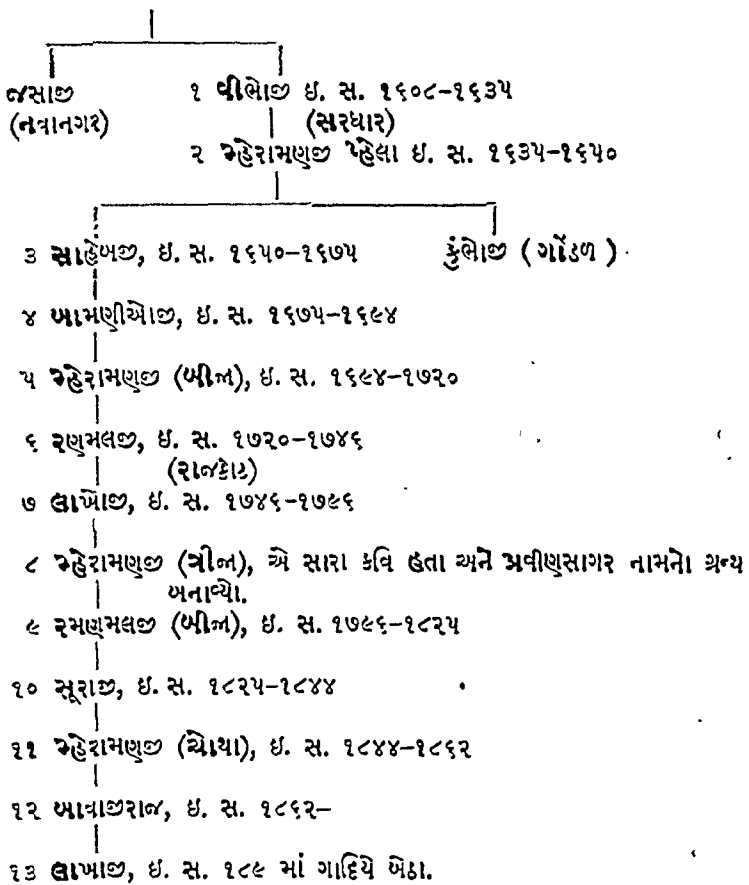 જસાજી ૧ વીભોજી ઇ. સ. ૧૬૦૮-૧૬૩૫
(નવાનગર) (સરધાર)
૨ મ્હેરામણજી પ્હેલા ઇ. સ. ૧૬૩૫-૧૬૫૦
૩ સાહેબજી, ઇ. સ. ૧૬૫૦-૧૬૭૫ કુંભોજી (ગોંડળ)
૪ બામણીઓજી, ઇ. સ. ૧૬૭૫-૧૬૯૪
૫ મ્હેરામણજી (બીજા), ઇ. સ. ૧૬૯૪-૧૭૨૦
૬ રણમલજી, ઇ. સ. ૧૭૨૦-૧૭૪૬
(રાજકોટ)
૭ લાખોજી, ઇ. સ. ૧૭૪૬-૧૭૯૬
૮ મ્હેરામણજી (ત્રીજા), એ સારા કવિ હતા અને પ્રવીણસાગર નામનો ગ્રન્થ
બનાવ્યો.
૯ રમણમલજી (બીજા), ઇ. સ. ૧૭૯૬-૧૮૨૫
૧૦ સૂરાજી, ઇ. સ. ૧૮૨૫-૧૮૪૪
૧૧ મ્હેરામણજી (ચોથા), ઇ. સ. ૧૮૪૪-૧૮૬૨
૧૨ બાવાજીરાજ, ઇ. સ. ૧૮૬૨-
૧૩ લાખાજી, ઇ. સ. ૧૮૯ માં ગાદિયે બેઠા.